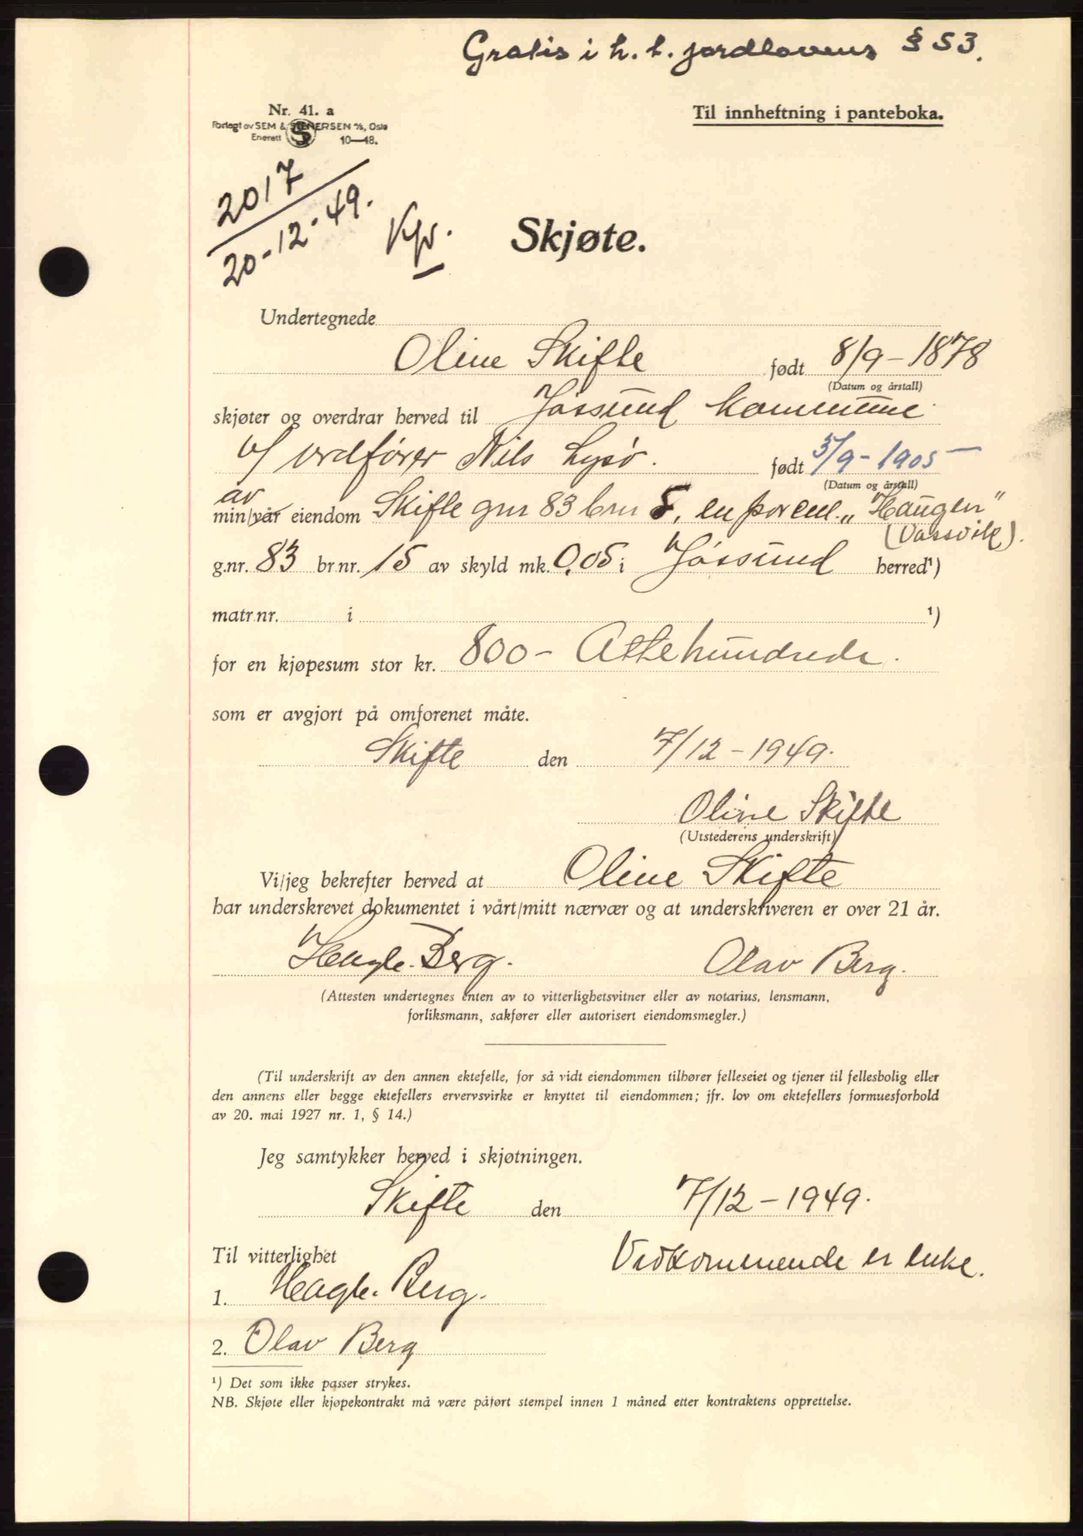 Gratis i h. t. jordlovens § 53.
Nr. 41. a
Forlagt av SEM & STENERSEN A/S, Oslo
Enerett S 10—48.
Til innheftning i panteboka.
2017
20-12-49.
Skjøte.
Undertegnede
Oline Skifte født 8/9-1878
(Datum og årstall)
skjøter og overdrar herved til Jøssund kommune
v/ ordfører Nils Lysø. født 5/9-1905
(Datum og årstall)
av
min/vår eiendom Skifte gnr 83 bnr 5, en parsell „Haugen"
(Vassvik).
g.nr. 83 br.nr. 15 av skyld mk. 0,05 i Jøssund herred¹)
matr.nr. i ¹)
for en kjøpesum stor kr. 800- Åttehundrede.
som er avgjort på omforenet måte.
Skifte den 7/12-1949.
Oline Skifte
(Utstederens underskrift)
Vi/jeg bekrefter herved at Oline Skifte
har underskrevet dokumentet i vårt/mitt nærvær og at underskriveren er over 21 år.
Berg. Olav Berg.
(Attesten undertegnes enten av to vitterlighetsvitner eller av notarius, lensmann,
forliksmann, sakfører eller autorisert eiendomsmegler.)
(Til underskrift av den annen ektefelle, for så vidt eiendommen tilhører felleseiet og tjener til fellesbolig eller
den annens eller begge ektefellers ervervsvirke er knyttet til eiendommen; jfr. lov om ektefellers formuesforhold
av 20. mai 1927 nr. 1, § 14.)
Jeg samtykker herved i skjøtningen.
Skifte den 7/12-1949.
Til vitterlighet Vedkommende er enke.
1. Berg.
2. Olav Berg
¹) Det som ikke passer strykes.
NB. Skjøte eller kjøpekontrakt må være påført stempel innen 1 måned etter kontraktens opprettelse.